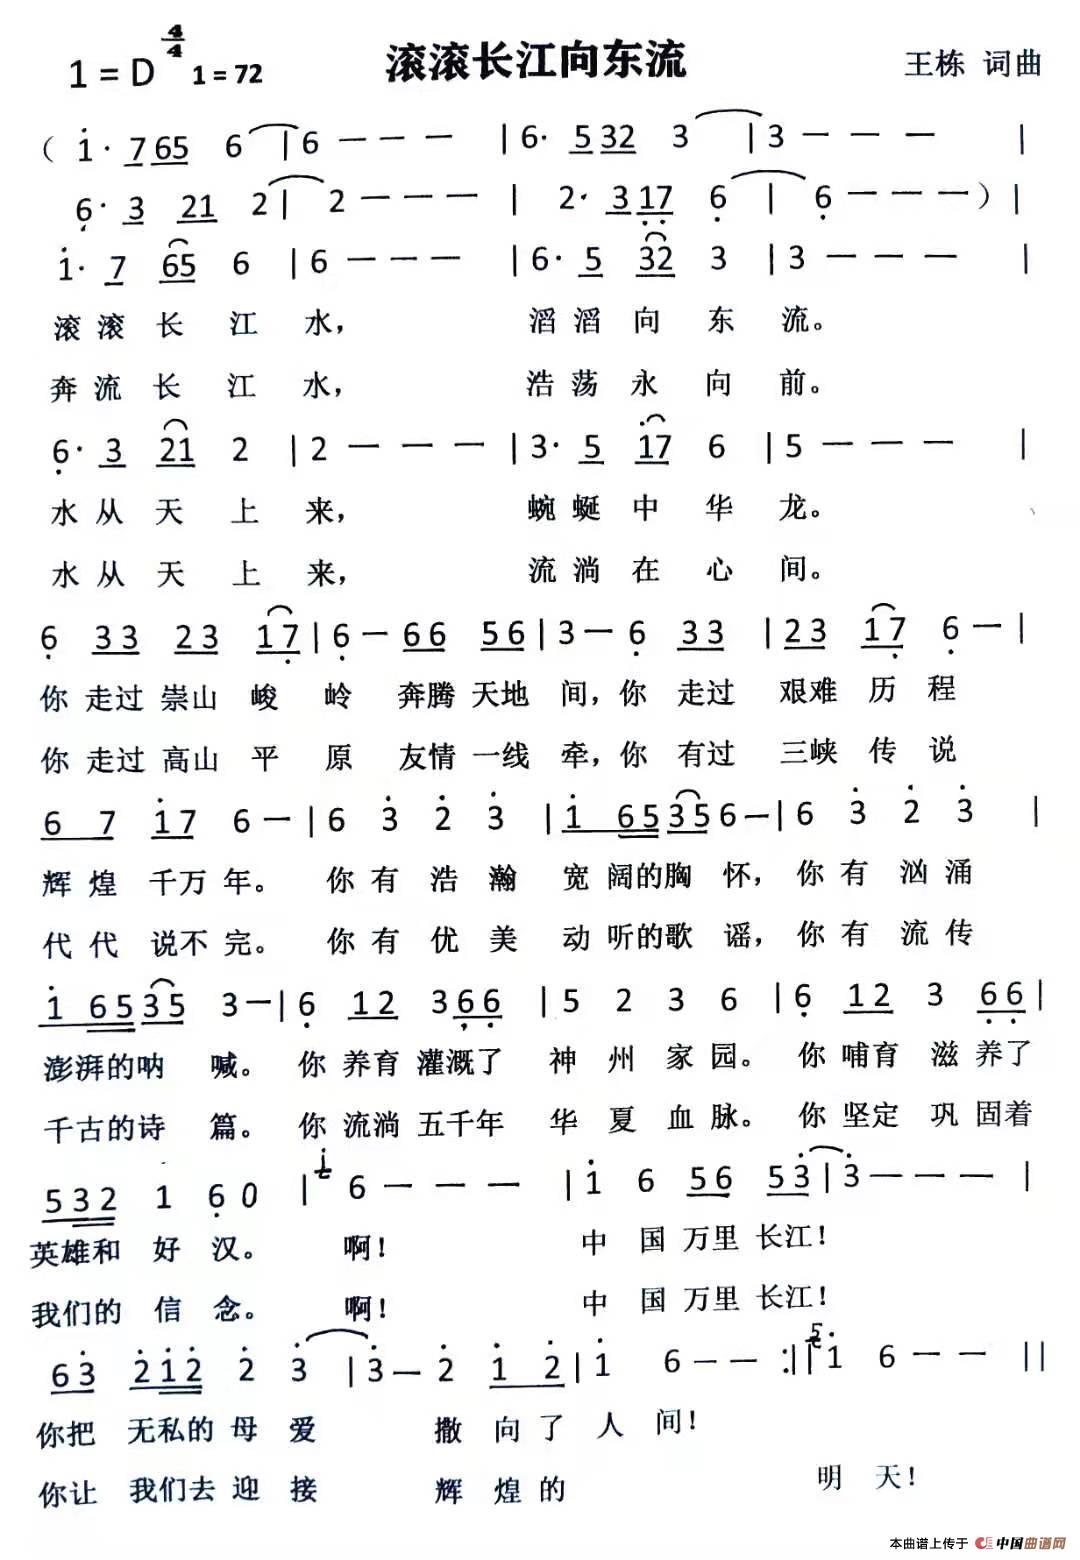 1 = D 4/4 1 = 72 滚滚长江向东流 王栋 词曲
( 1· 7 65 6 | 6 — — — | 6· 5 32 3 | 3 — — — |
6· 3 21 2 | 2 — — — | 2· 3 17 6 | 6 — — — ) |
1· 7 65 6 | 6 — — — | 6· 5 32 3 | 3 — — — |
滚 滚 长 江 水， 滔 滔 向 东 流。
奔 流 长 江 水， 浩 荡 永 向 前。
6· 3 21 2 | 2 — — — | 3· 5 17 6 | 5 — — — |
水 从 天 上 来， 蜿 蜒 中 华 龙。
水 从 天 上 来， 流 淌 在 心 间。
6 33 23 17 | 6 — 66 56 | 3 — 6 33 | 23 17 6 — |
你 走过 崇山 峻 岭 奔腾 天地 间，你 走过 艰难 历 程
你 走过 高山 平 原 友情 一线 牵，你 有过 三峡 传 说
6 7 17 6 — | 6 3 2 3 | 1 65 35 6 — | 6 3 2 3 |
辉 煌 千万 年。 你 有 浩 瀚 宽 阔的胸 怀， 你 有 汹 涌
代 代 说不 完。 你 有 优 美 动 听的歌 谣， 你 有 流 传
1 65 35 3 — | 6 12 3 66 | 5 2 3 6 | 6 12 3 66 |
澎湃的呐 喊。 你 养育 灌溉了 神 州 家 园。 你 哺育 滋 养了
千古的诗 篇。 你 流淌 五千年 华 夏 血 脉。 你 坚定 巩 固着
532 1 6 0 | i 6 — — — | 1 6 56 53 | 3 — — — |
英雄和 好 汉。 啊！ 中 国 万里 长江！
我们的 信 念。 啊！ 中 国 万里 长江！
63 212 2 3 | 3 — 2 1 2 | 1 6 — — :|| 5 1 6 — — ||
你把 无私的 母 爱 撒 向 了 人 间！
你让 我们去 迎 接 辉 煌 的 明 天！
本曲谱上传于 中国曲谱网